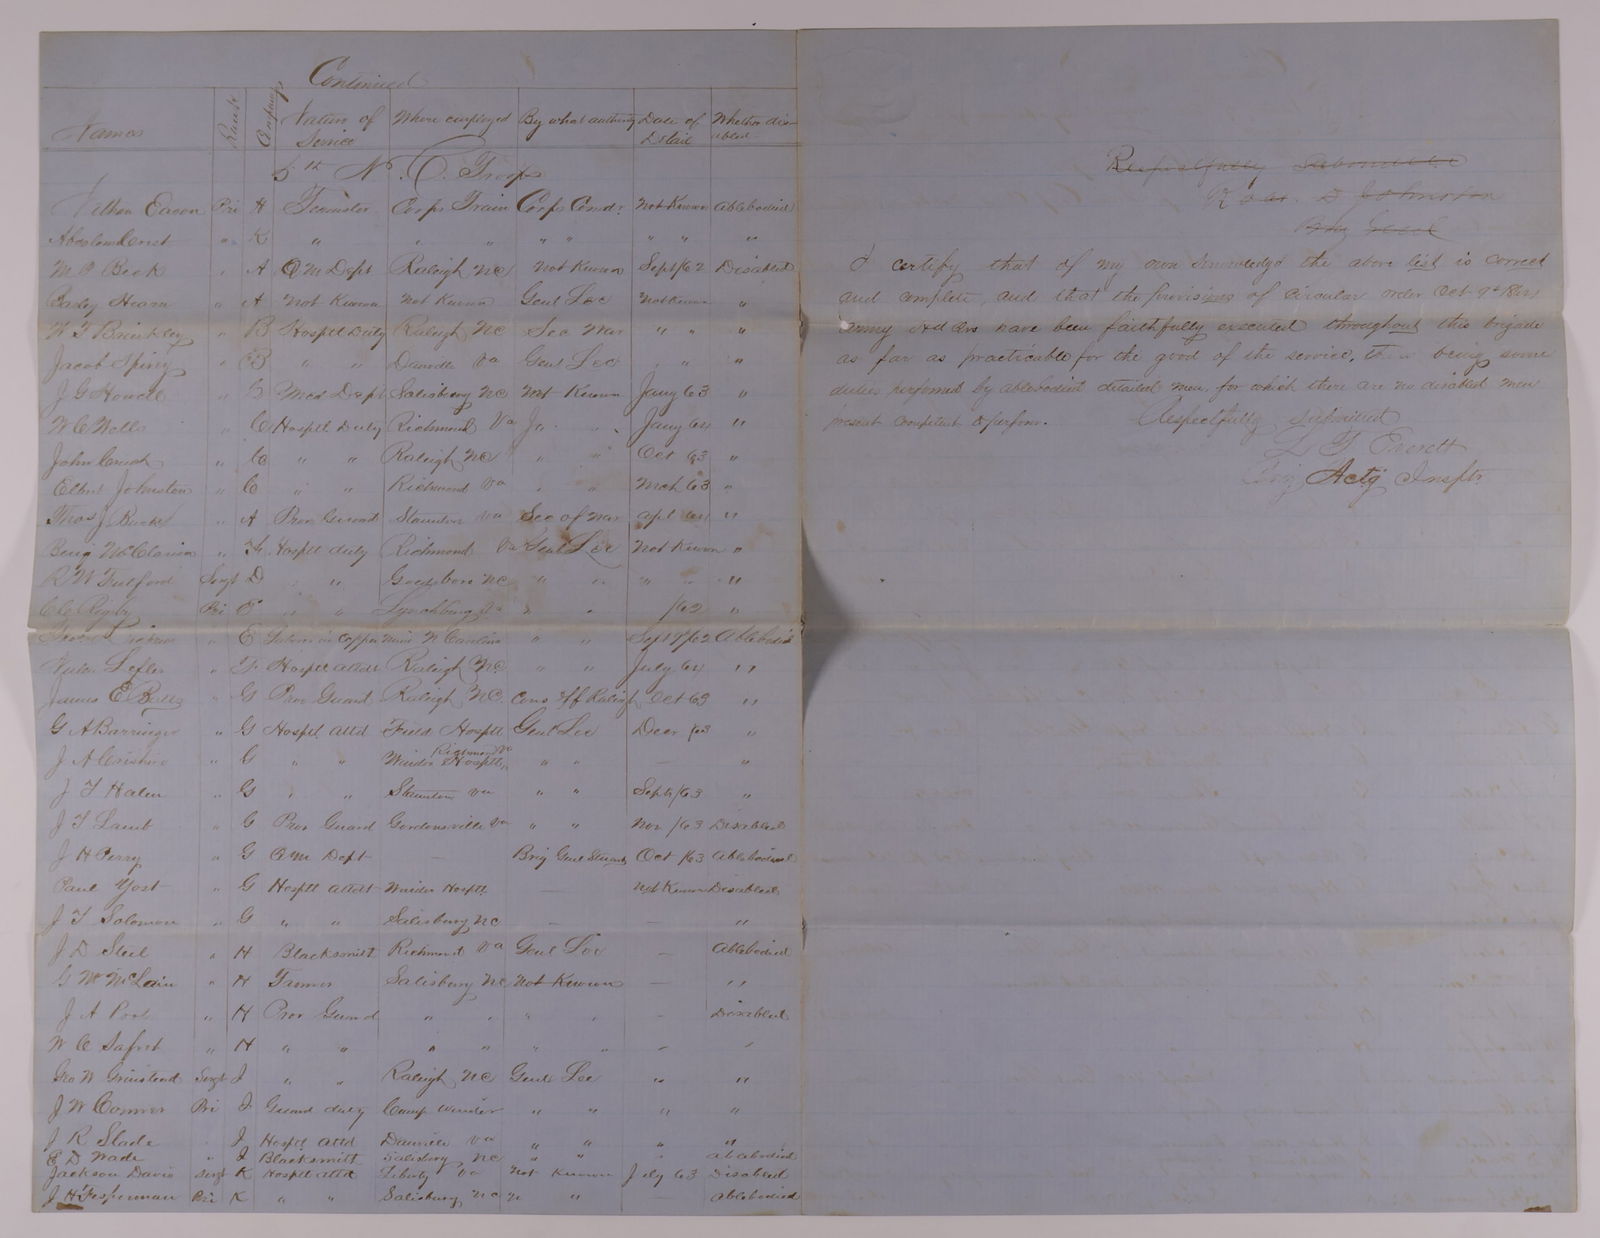 Continued
Names Rank Company Nature of Service Where employed By what authority Date of Detail Whether disabled
5th N. C. Troops
Eason Pri H Teamster Corps Train Corps Comdr. Not Known Ablebodied
K " " " " " " " "
M P Beck " A Q M Dept Raleigh NC Not Known Sept/62 Disabled
Hearn " A Not Known Not Known Genl Lee Not Known "
W T Brinkley " B Hosptl Duty Raleigh NC Sec War " " "
Jacob Spring " B " " Danville Va Genl Lee " " "
J G Howell " B Med Dept Salisbury NC Not Known Jany 63 "
W C Wells " C Hosptl Duty Richmond Va " " Jany 64 "
John " C " " Raleigh NC " " Oct 63 "
Elbert Johnston " C " " Richmond Va " " Mch 63 "
Thos J " A Prov Guard Staunton Va Sec of War Apl 64 "
Benj " Hosptl duty Richmond Va Genl Lee Not Known "
R W Fulford Sergt D " " Goldsboro NC " " " " "
Rigby Pri E " " Lynchburg Va " " /62 "
" E Copper Mine N Carolina " " Sept /62 Ablebodied
Lefler " F Hosptl attdt Raleigh NC " " July 64 "
James E " G Prov Guard Raleigh NC. Cons off Raleigh Oct 63 "
G A Barringer " G Hosptl attd Field Hosptl Genl Lee Decr /63 "
J A " G " " Winder Hosptl Richmond Va " " — "
J T " G " " Staunton Va " " Sept/63 "
J T Lamb " G Prov Guard Gordonsville Va " " Nov /63 Disabled
J H Perry " G Q M Dept — Brig Genl Oct /63 Ablebodied
Paul Yost " G Hosptl attdt Winder Hosptl — Not Known Disabled
J T Solomon " G " " Salisbury NC — — "
J D " H Blacksmith Richmond Va Genl Lee — Ablebodied
G W McLain " H Tanner Salisbury NC Not Known — "
J A Pool " H Prov Guard " " " " — Disabled
W C Safret " H " " " " " " — "
Geo W Grinstead Sergt I " " Raleigh NC Genl Lee " "
J W Conner Pri I Guard duty Camp Winder " " " "
J R Slade " I Hosptl attd Danville Va " " " "
E D Wade " I Blacksmith Salisbury, NC " " " Ablebodied
Jackson Davis Sergt K Hosptl attd Liberty Va Not Known July 63 Disabled
J H Fesperman Pri K " " Salisbury NC " " — Ablebodied
Respectfully Submitted
Robt. D Johnston
Brig Genl
I certify that of my own knowledge the above list is correct
and complete, and that the provisions of Circular order Oct 9th 1864
Army Hd Qrs have been faithfully executed throughout this brigade
as far as practicable for the good of the service, there being some
duties performed by ablebodied detailed men, for which there are no disabled men
present competent to perform. Respectfully Submitted
Everett
Brig Actg Insptr.